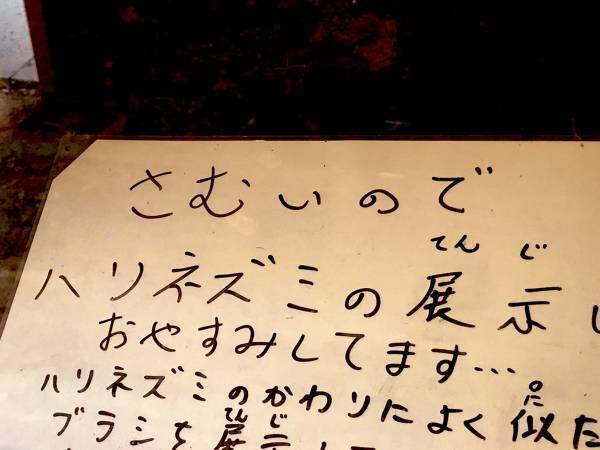 さむいので
てんじ
ハリネズミの展示
おやすみしてます…
ハリネズミのかわりによく似た
に
ブラシを展示
てんじ